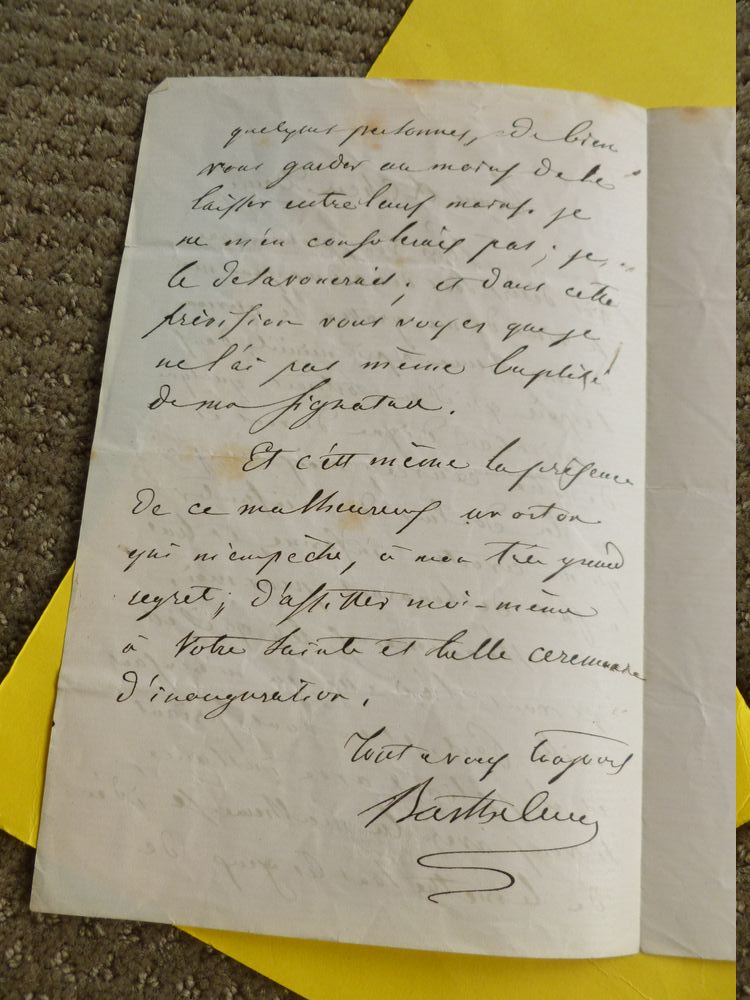 quelques personnes, de bien
vous garder au moins de le
laisser entre leurs mains. je
ne m'en consolerais pas; je
le desavouerais; et dans cette
prévision vous voyez que je
ne l'ai pas même baptisé
de ma signature.
Et c'est même la présence
de ce malheureux avorton
qui m'empêche, à mon très grand
regret; d'assister moi-même
à Votre Sainte et belle ceremonie
d'inauguration.
Tout a vous toujours
Barthelemy